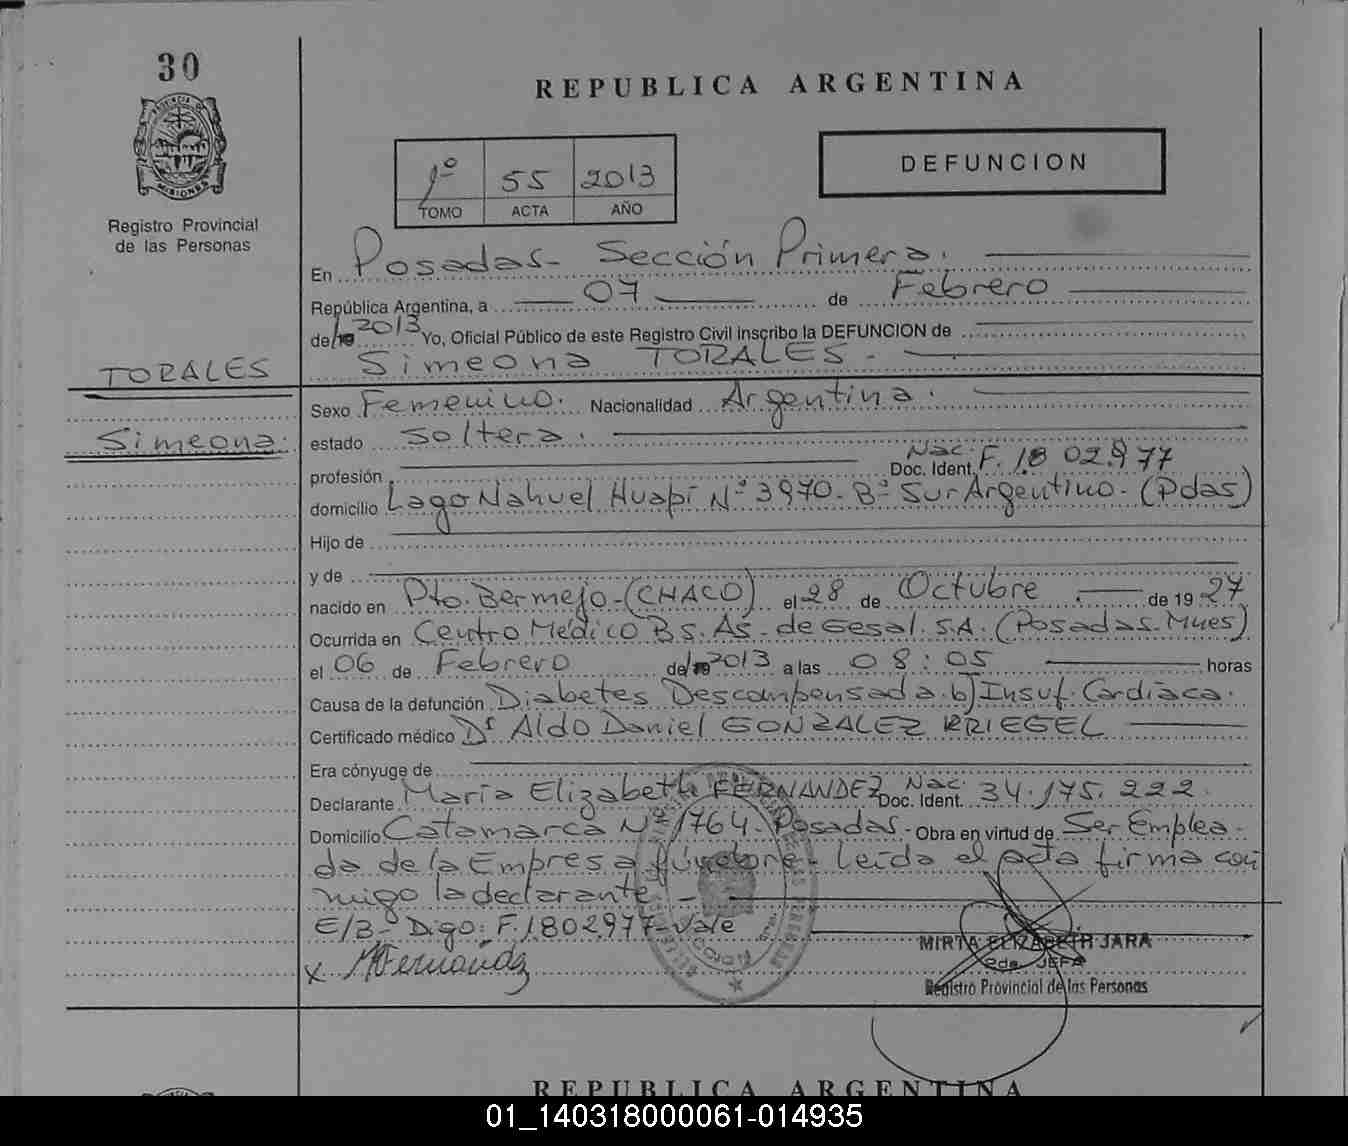 30
PROVINCIA DE MISIONES
Registro Provincial
de las Personas
TORALES
Simeona.
REPUBLICA ARGENTINA
1º 55 2013
TOMO ACTA AÑO
DEFUNCION
En Posadas - Sección Primera.
República Argentina, a 07 de Febrero
de 2013 Yo, Oficial Público de este Registro Civil inscribo la DEFUNCION de
Simeona TORALES -
Sexo Femenino. Nacionalidad Argentina.
estado soltera.
profesión Doc. Ident. Nac. F. 1.802.977
domicilio Lago Nahuel Huapí Nº 3970 - Bº Sur Argentino - (Pdas)
Hijo de
y de
nacido en Pto. Bermejo - (CHACO) el 28 de Octubre de 1927
Ocurrida en Centro Médico Bs. As. de Gesal. S.A. (Posadas. Mnes)
el 06 de Febrero de 2013 a las 08:05 horas
Causa de la defunción Diabetes Descompensada b) Insuf. Cardíaca.
Certificado médico Dr Aldo Daniel GONZALEZ KRIEGEL
Era cónyuge de
Declarante María Elizabeth FERNANDEZ Doc. Ident. Nac. 34.175.222.
Domicilio Catamarca Nº 1764 - Posadas - Obra en virtud de Ser Emplea-
da de la Empresa fúnebre - Leída el acta firma con
migo la declarante -
E/B - Digo: F. 1.802.977 - Vale
x MFernández
MIRTA ELIZABETH JARA
2da. JEFA
Registro Provincial de las Personas
REPUBLICA ARGENTINA
01_140318000061-014935